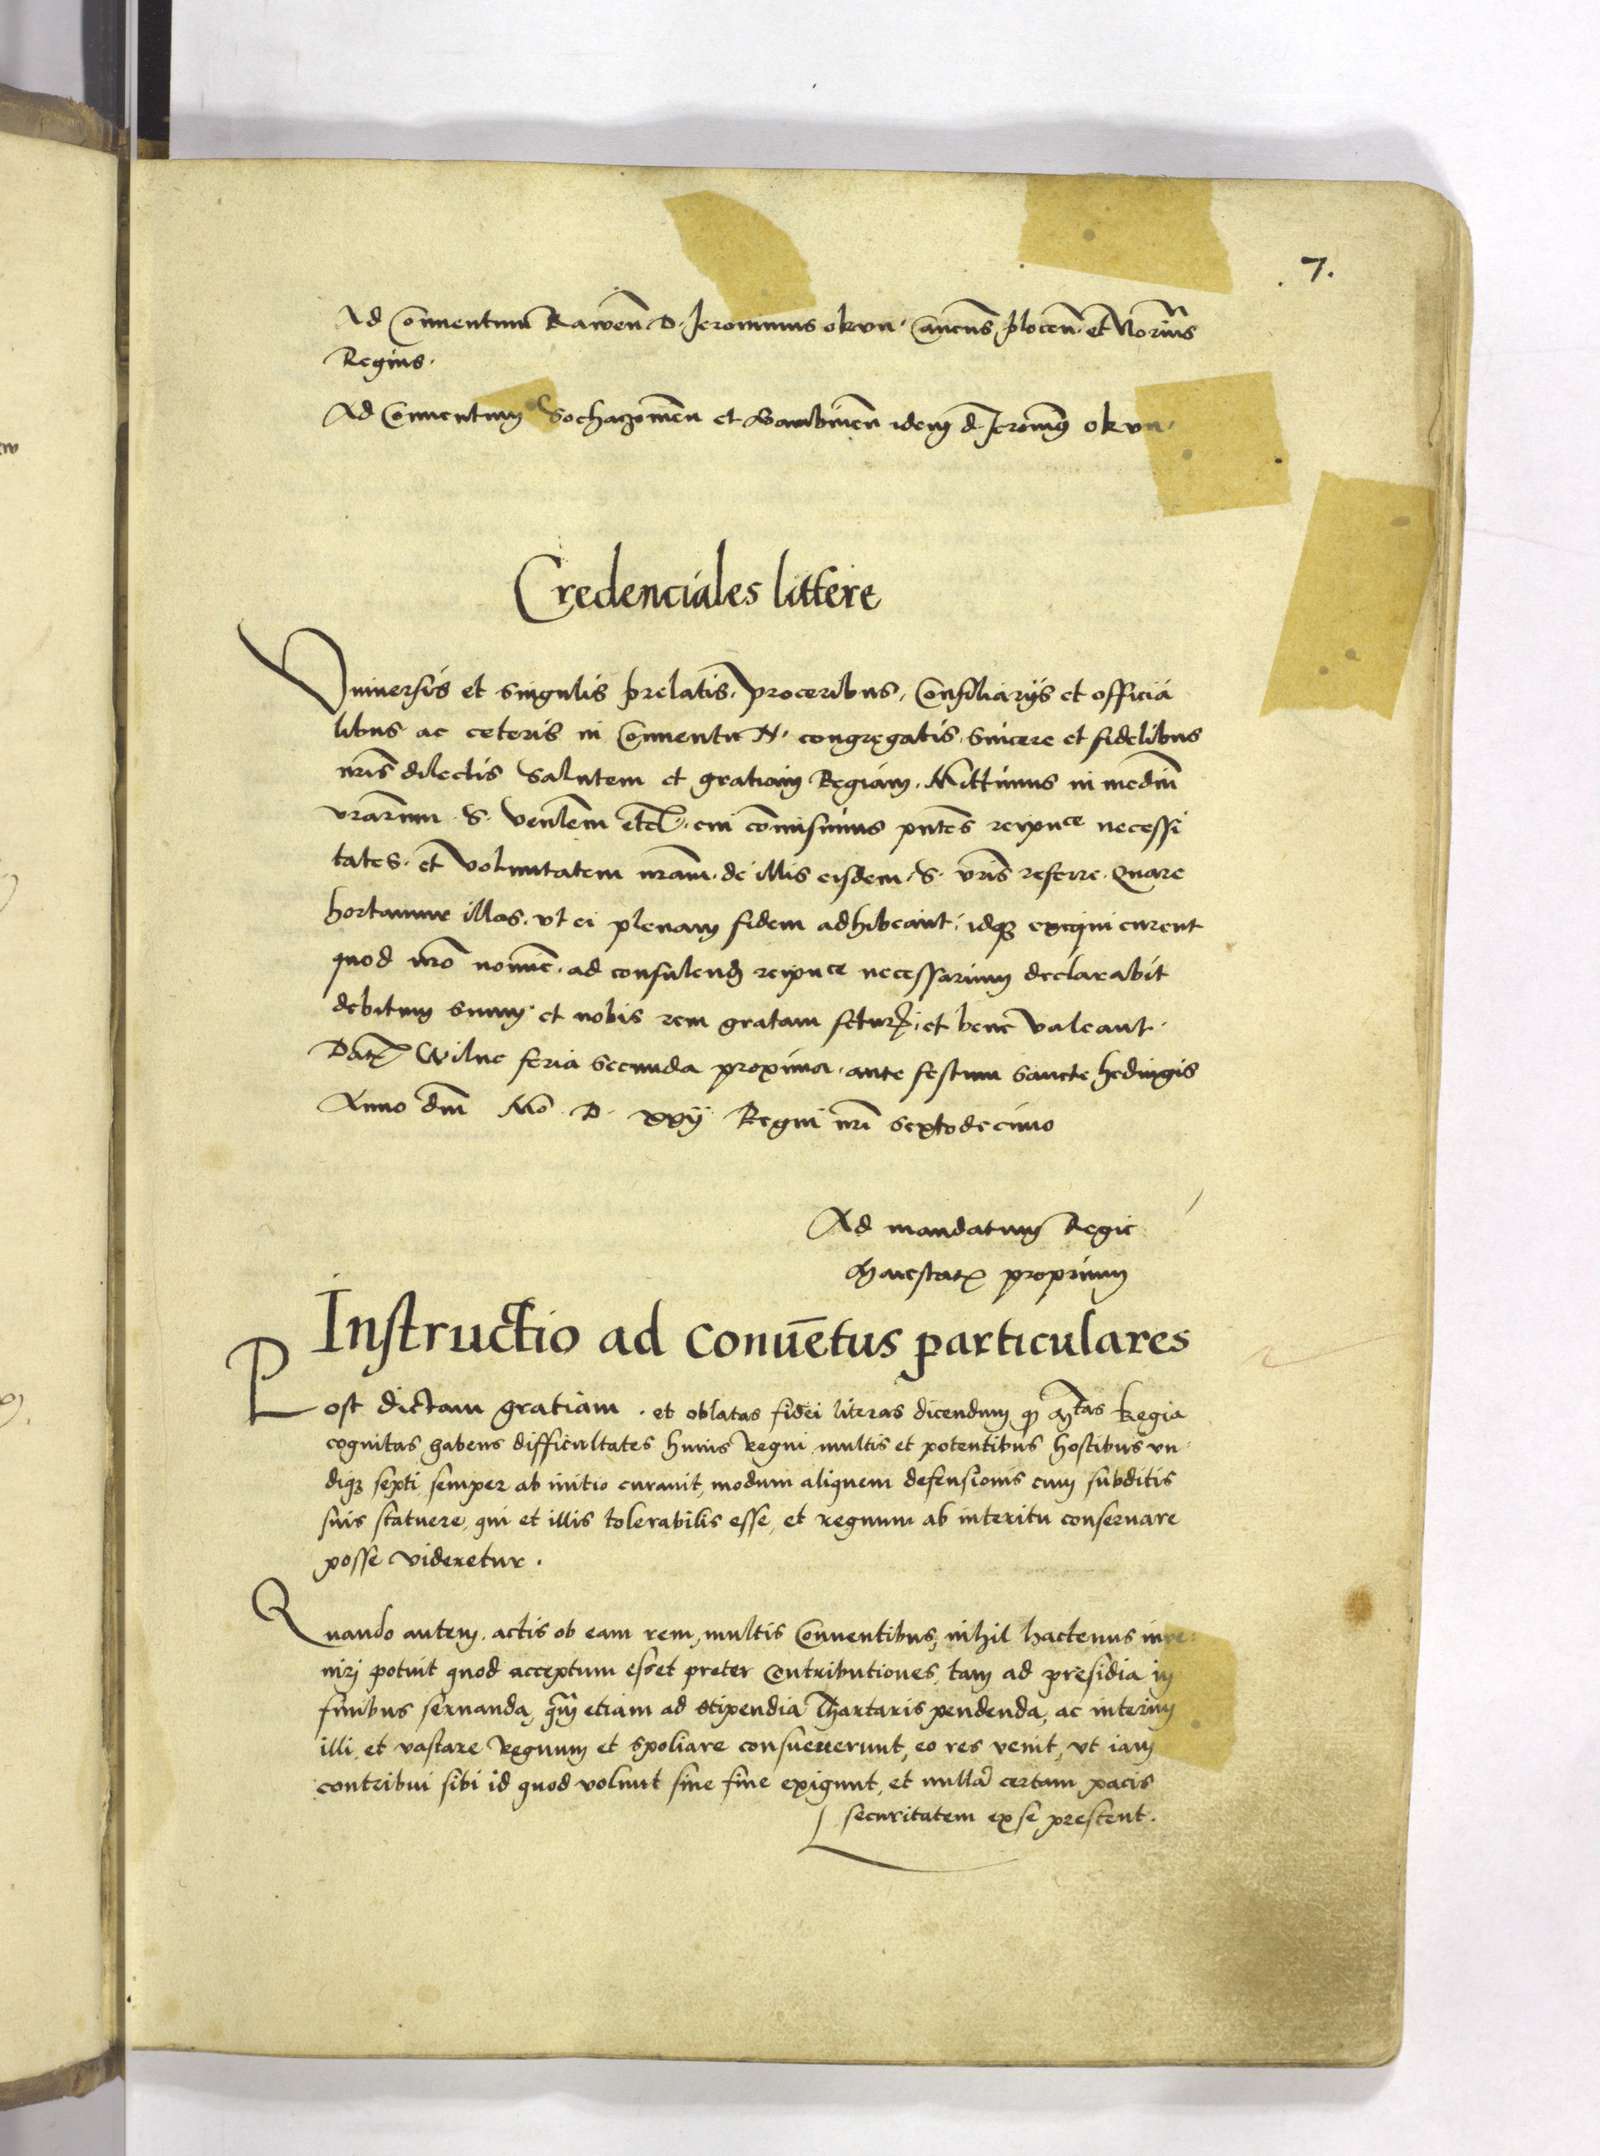 7.
Ad Conuentum Rawen̄ D. Jeronimus okvn. Canc̄us plocen̄. et Nori̅us
Regius.
Ad Conuentum Sochaczowien̄ et Gambinen̄ idem d. Jeronim9 okvn.
Credenciales littere
Vniuersis et singulis prelatis. proceribus, Consiliarijs et officia
libus ac ceteris in Conuentu N. congregatis, Sincere et fidelibus
nr̄is dilectis Salutem et gratiam Regiam. Mittimus in mediū
vrarum. S. Venlem etc̄. cui com̄isimus pn̄tes reipuce necessi
tates. et Voluntatem nr̄am. de illis eisdem. S. vr̄is referre. Quare
hortamur illas, vt ei plenam fidem adhibeant, idq3 exequi curent
quod nr̄o nomīe. ad consulend̄ reipuce necessarium declarabit
debitum suum. et nobis rem gratam fctur̄. et bene Valeant.
Dat̄ Wilne feria secunda proxima. ante festum Sancte hedvigis
Anno dn̄i Mo. D. xxij Regni nr̄i sextodecimo
Ad mandatum Regie
Maiestat̄ proprium
Instructio ad conuētus particulares
Post dictam gratiam. et oblatas fidei literas dicendum qd Mtas Regia
cognitas habens difficultates huius Regni multis et potentibus hostibus vn
diq3 septi semper ab initio curauit, modum aliquem defensionis cum subditis
suis statuere, qui et illis tolerabilis esse, et regnum ab interitu conseruare
posse videretur.
Quando autem. actis ob eam rem, multis Conuentibus, nihil hactenus inue
niri potuit quod acceptum esset preter Contributiones, tam ad presidia in
finibus seruanda, qm̄ etiam ad stipendia Thartaris pendenda, ac interim
illi, et vastare Regnum et spoliare consueuerunt, eo res venit, vt iam
contribui sibi id quod volunt sine fine exigunt, et nullā certam pacis
securitatem ex se prestent.